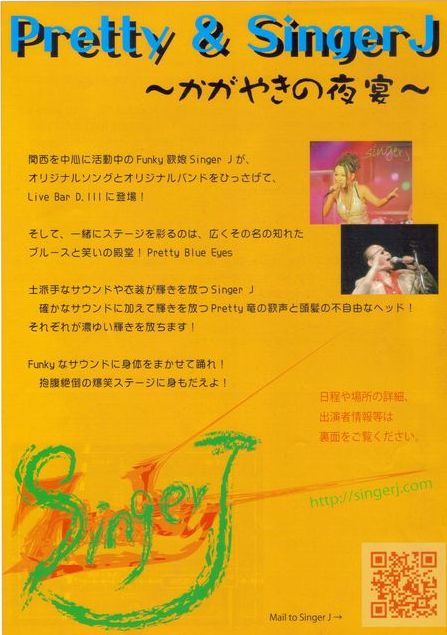 Pretty & SingerJ
～かがやきの夜宴～
singerj
関西を中心に活動中のFunky歌娘Singer Jが、
オリジナルソングとオリジナルバンドをひっさげて、
Live Bar D.IIIに登場！
そして、一緒にステージを彩るのは、広くその名の知れた
ブルースと笑いの殿堂！Pretty Blue Eyes
土派手なサウンドや衣装が輝きを放つSinger J
確かなサウンドに加えて輝きを放つPretty竜の歌声と頭髪の不自由なヘッド！
それぞれが濃ゆい輝きを放ちます！
Funkyなサウンドに身体をまかせて踊れ！
抱腹絶倒の爆笑ステージに身もだえよ！
日程や場所の詳細、
出演者情報等は
裏面をご覧ください。
SingerJ
http://singerj.com
Mail to Singer J→